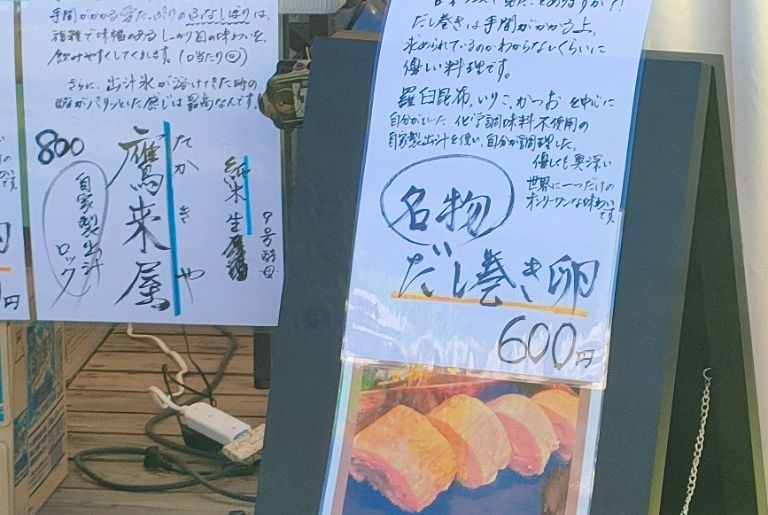 手間がかかる
ふなしぼりは、
複雑で味幅のあるしっかり目の味わいを、
飲みやすくしてくれます。
さらに、出汁氷が溶けてきた時の
感じは最高なんです!
800
鷹来屋
たかきや
自家製出汁
ロック
純米生原酒
9号酵母
だし巻きは手間がかかる上、
求められているのかわからないくらいに
優しい料理です。
羅臼昆布、いりこ、かつおを中心に
自分がひいた化学調味料不使用の
自家製出汁を使い、自分が調理した、
優しくも奥深い
世界に一つだけの
オンリーワンな味わいです。
名物
だし巻き卵
600円
円